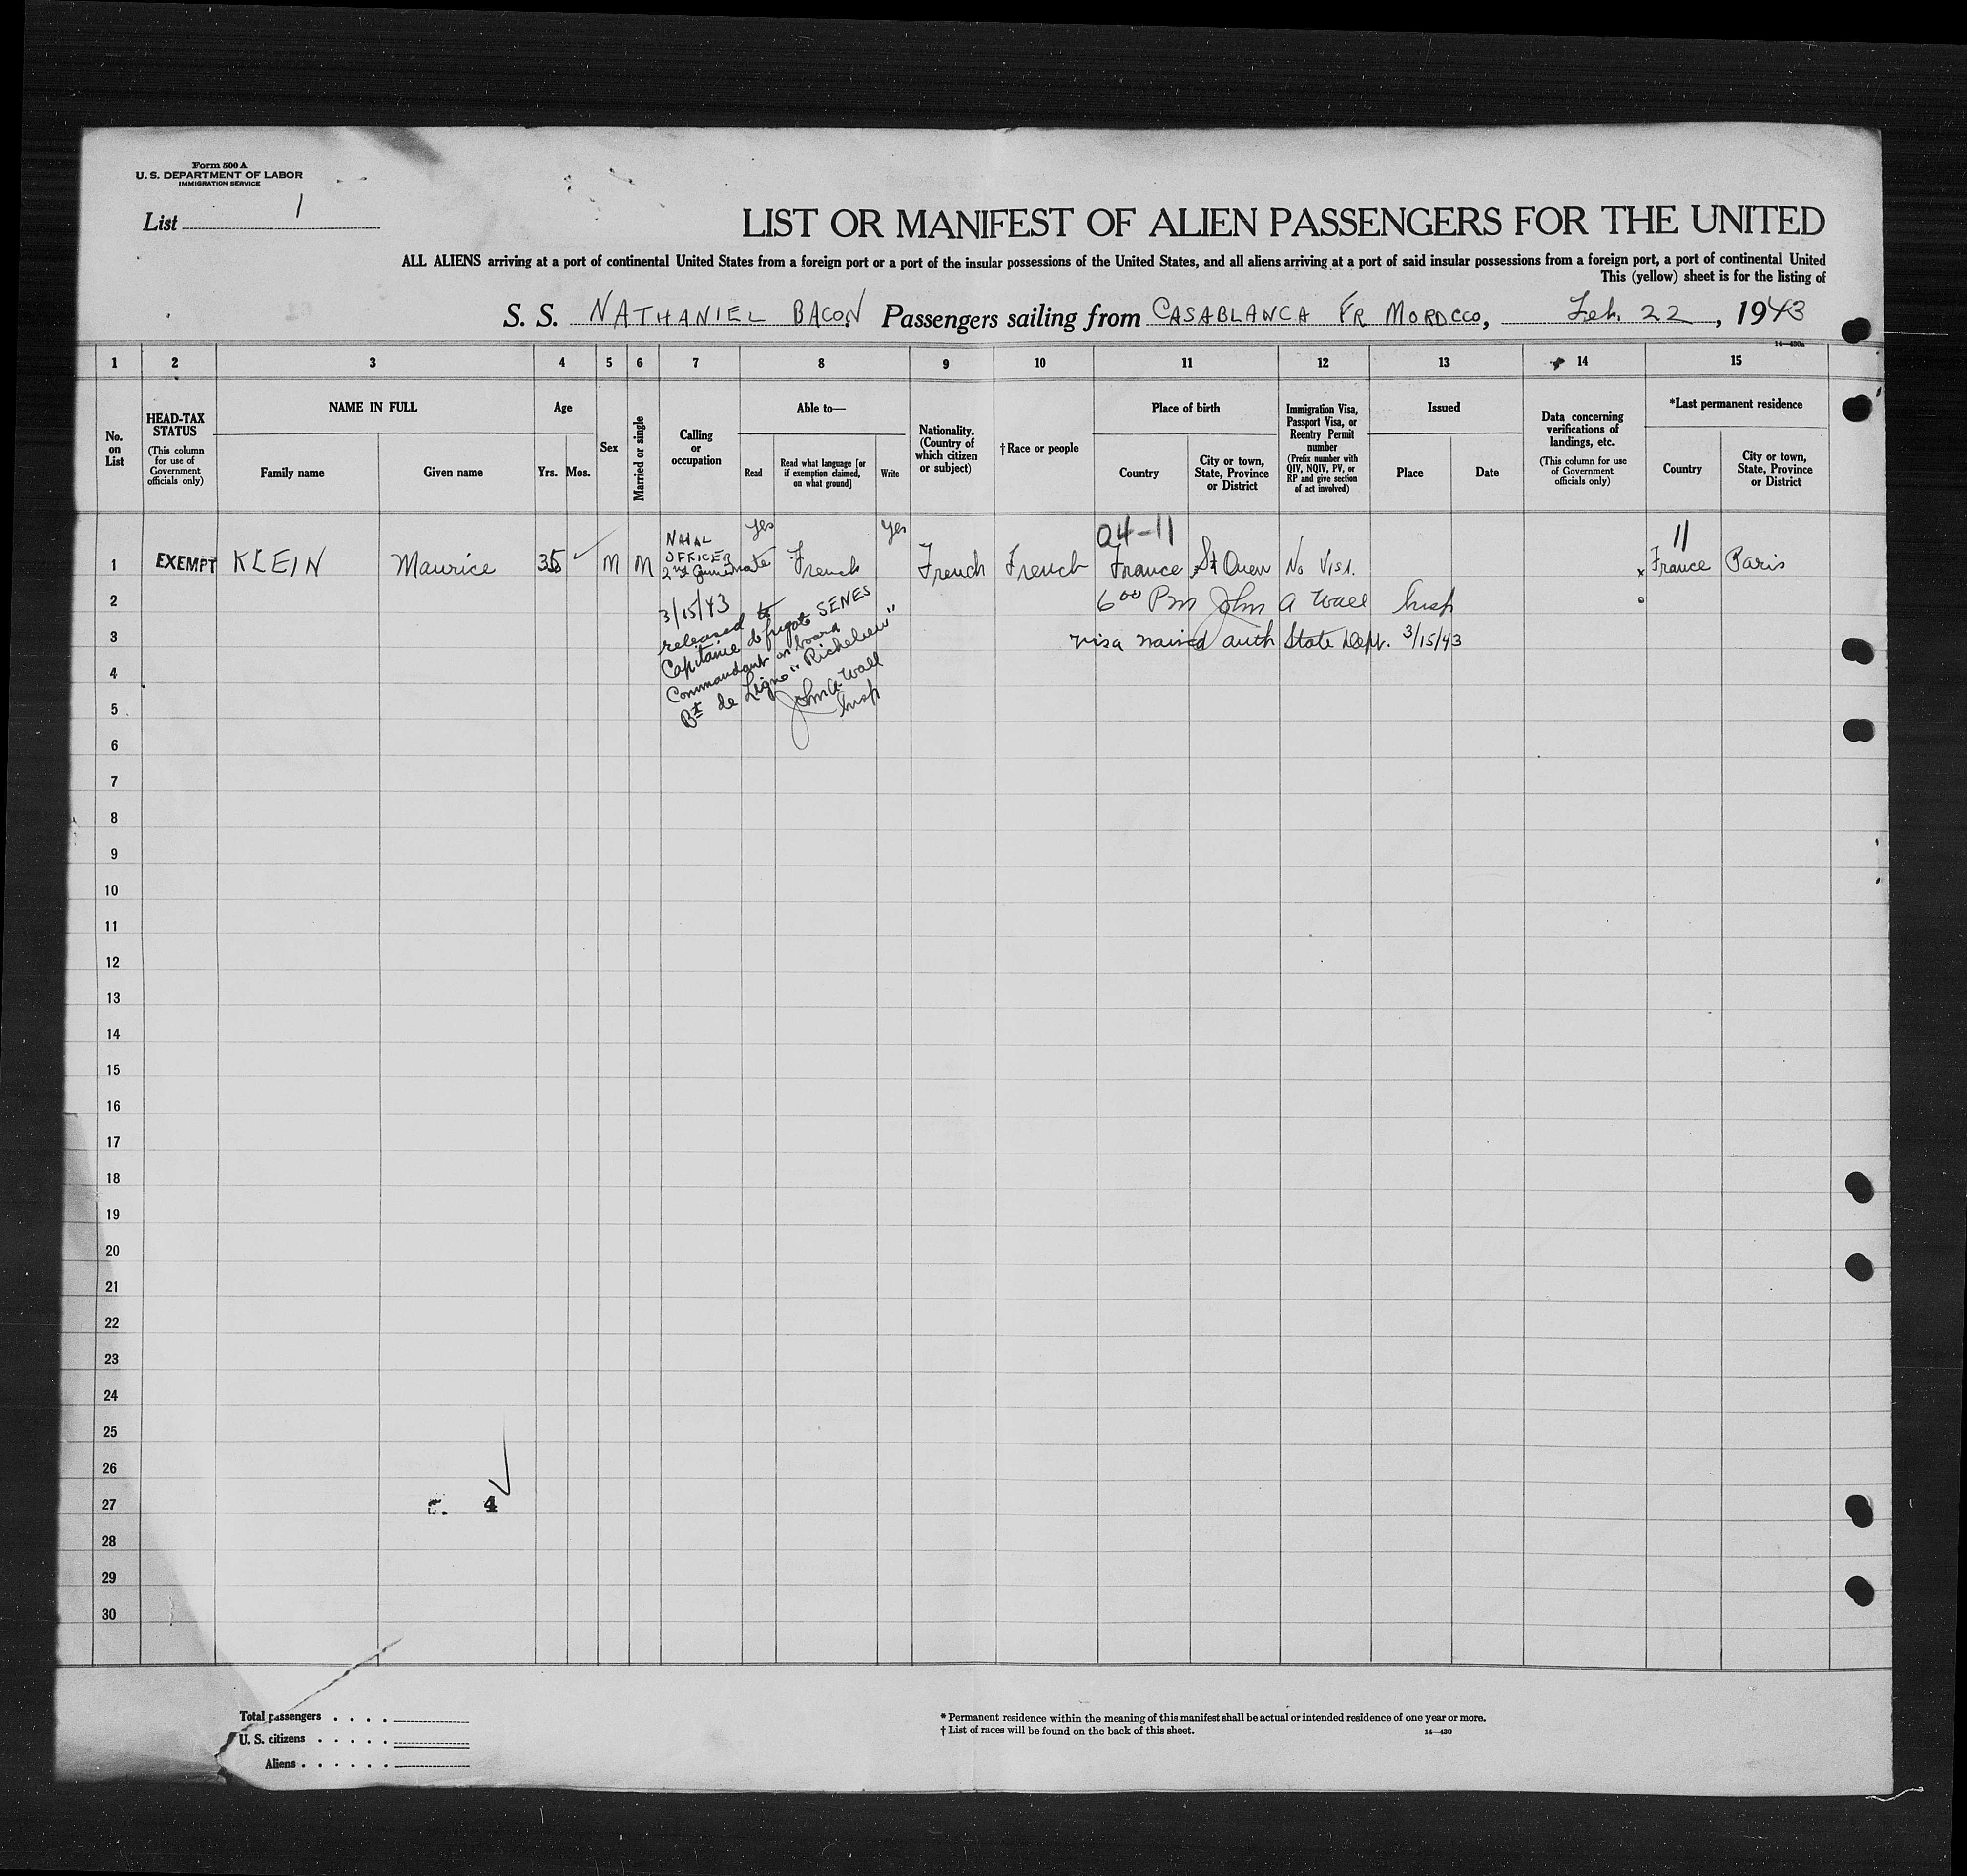 Form 500 A
U. S. DEPARTMENT OF LABOR
IMMIGRATION SERVICE
List 1
LIST OR MANIFEST OF ALIEN PASSENGERS FOR THE UNITED
ALL ALIENS arriving at a port of continental United States from a foreign port or a port of the insular possessions of the United States, and all aliens arriving at a port of said insular possessions from a foreign port, a port of continental United
This (yellow) sheet is for the listing of
S. S. NATHANIEL BACON Passengers sailing from CASABLANCA FR MOROCCO, Feb. 22, 1943
14—430a
1 2 3 4 5 6 7 8 9 10 11 12 13 14 15
No. on List
HEAD-TAX STATUS
(This column for use of Government officials only)
NAME IN FULL
Family name
Given name
Age
Yrs. Mos.
Sex
Married or single
Calling or occupation
Able to—
Read
Read what language [or if exemption claimed, on what ground]
Write
Nationality. (Country of which citizen or subject)
†Race or people
Place of birth
Country
City or town, State, Province or District
Immigration Visa, Passport Visa, or Reentry Permit number
(Prefix number with QIV, NQIV, PV, or RP and give section of act involved)
Issued
Place
Date
Data concerning verifications of landings, etc.
(This column for use of Government officials only)
*Last permanent residence
Country
City or town, State, Province or District
04-11
11
1 EXEMPT KLEIN Maurice 35 M M NAVAL OFFICER 2nd yes French yes French French France St Ouen No Visa. x France Paris
2 6 00 Pm John A Wall Insp
3 visa waived auth State Dept. 3/15/43
3/15/43
released to
Capitaine de frigate SENES
Commandant on board
Bt de Ligne "Richelieu"
John A. Wall
Insp
4
5
6
7
8
9
10
11
12
13
14
15
16
17
18
19
20
21
22
23
24
25
26
27 4
28
29
30
Total passengers . . . .
U. S. citizens . . . . .
Aliens . . . . . .
* Permanent residence within the meaning of this manifest shall be actual or intended residence of one year or more.
† List of races will be found on the back of this sheet.
14—430